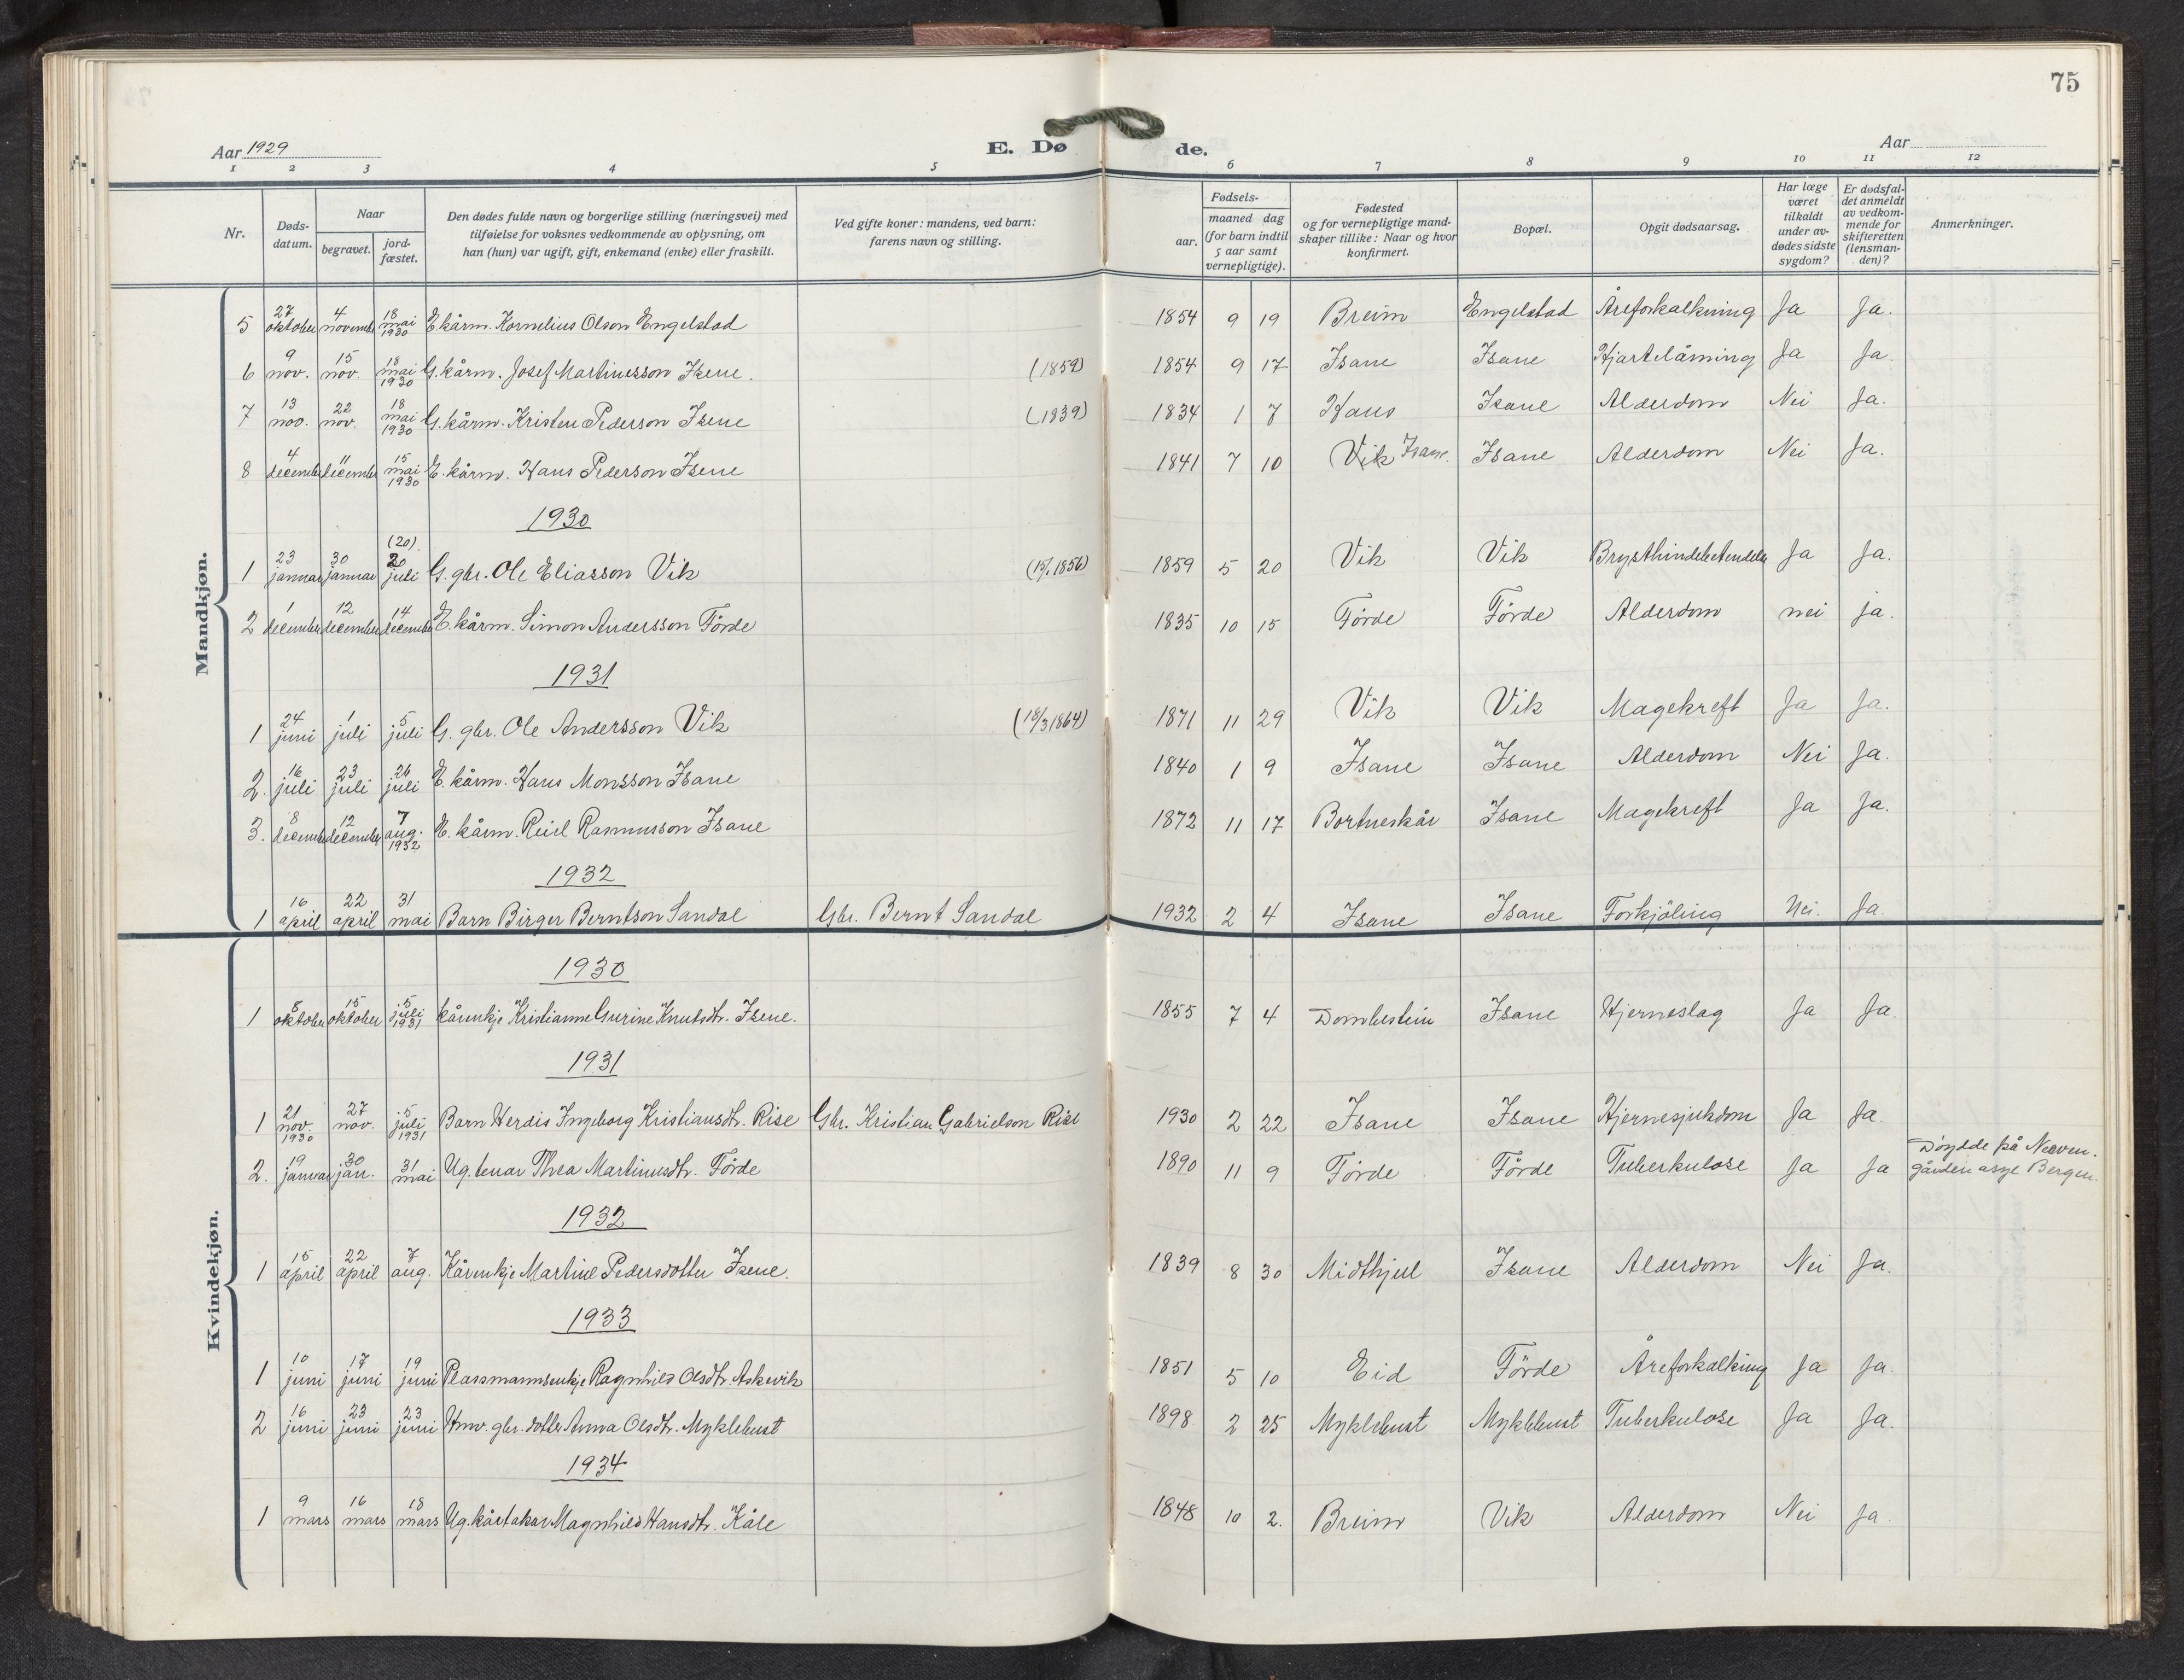 75
Aar 1929
E. Dø de.
Aar
1 2 3 4 5 6 7 8 9 10 11 12
Nr.
Døds-datum.
Naar
begravet.
jord-fæstet.
Den dødes fulde navn og borgerlige stilling (næringsvei) med
tilføielse for voksnes vedkommende av oplysning, om
han (hun) var ugift, gift, enkemand (enke) eller fraskilt.
Ved gifte koner: mandens, ved barn:
farens navn og stilling.
Fødsels-
aar.
maaned dag
(for barn indtil
5 aar samt
vernepligtige).
Fødested
og for vernepligtige mand-
skaper tillike: Naar og hvor
konfirmert.
Bopæl.
Opgit dødsaarsag.
Har læge
været
tilkaldt
under av-
dødes sidste
sygdom?
Er dødsfal-
det anmeldt
av vedkom-
mende for
skifteretten
(lensman-
den)?
Anmerkninger.
Mandkjøn.
5 27 oktober 4 november 18 mai 1930 E. kårm. Kornelius Olson Engelstad 1854 9 19 Breim Engelstad Åreforkalkning Ja Ja.
6 9 nov. 15 nov. 18 mai 1930 G. kårm. Josef Martinusson Isene. (1859) 1854 9 17 Isane Isane Hjartelåming Ja Ja.
7 13 nov. 22 nov. 18 mai 1930 G. kårm. Kristen Pederson Isene (1839) 1834 1 7 Haus Isane Alderdom Nei Ja.
8 4 december 11 december 15 mai 1930 E. kårm. Hans Pederson Isene 1841 7 10 Vik Isane. Isane Alderdom Nei Ja.
1930
1 23 januar 30 januar (20) 20 juli G. gbr. Ole Eliasson Vik (15/1 1856) 1859 5 20 Vik Vik Brysthindebetendelse Ja Ja.
2 1 december 12 december 14 december E. kårm. Simon Andersson Förde 1835 10 15 Förde Förde Alderdom nei ja.
1931
1 24 juni 1 juli 5 juli G. gbr. Ole Andersson Vik (18/3 1864) 1871 11 29 Vik Vik Magekreft Ja Ja.
2. 16 juli 23 juli 26 juli E. kårm. Hans Monsson Isane 1840 1 9 Isane Isane Alderdom Nei Ja.
3. 8 december 12 december 7 aug. 1932 E. kårm. Reiel Rasmusson Isane 1872 11 17 Bortneskår Isane Magekreft Ja Ja.
1932
1 16 april 22 april 31 mai Barn Birger Berntson Sandal Gbr. Bernt Sandal 1932 2 4 Isane Isane Forkjöling Nei. Ja.
Kvindekjøn.
1930
1 8 oktober 15 oktober 5 juli 1931 kårenkje Kristianne Gurine Knutsdtr. Isene. 1855 7 4 Dombestein Isane Hjerneslag Ja Ja.
1931
1 21 nov. 1930 27 nov. 5 juli 1931 Barn Herdis Ingeborg Kristiansdtr. Rise Gbr. Kristian Gabrielson Rise 1930 2 22 Isane Isane Hjernesjukdom Ja Ja.
2. 19 januar 30 jan. 31 mai Ug. tenar Thea Martinusdtr. Förde 1890 11 9 Förde Förde Tuberkulose Ja Ja Döydde på Nerven-
gården asyl Bergen.
1932
1 15 april 22 april 7 aug. Kårenkje Martine Pedersdotter Isene. 1839 8 30 Midthjell Isane Alderdom Nei Ja.
1933
1 10 juni 17 juni 19 juni Plassmannsenkje Ragnhild Olsdtr. Askevik 1851 5 10 Eid Förde Åreforkalking Ja Ja.
2 16 juni 23 juni 23 juni Ymv. gbr. dotter Anna Olsdtr. Myklebust 1898 2 25 Myklebust Myklebust Tuberkulose Ja Ja.
1934
1 9 mars 16 mars 18 mars Ug. kårtakar Magnhild Hansdtr. Kåle 1848 10 2. Breim Vik Alderdom Nei Ja.